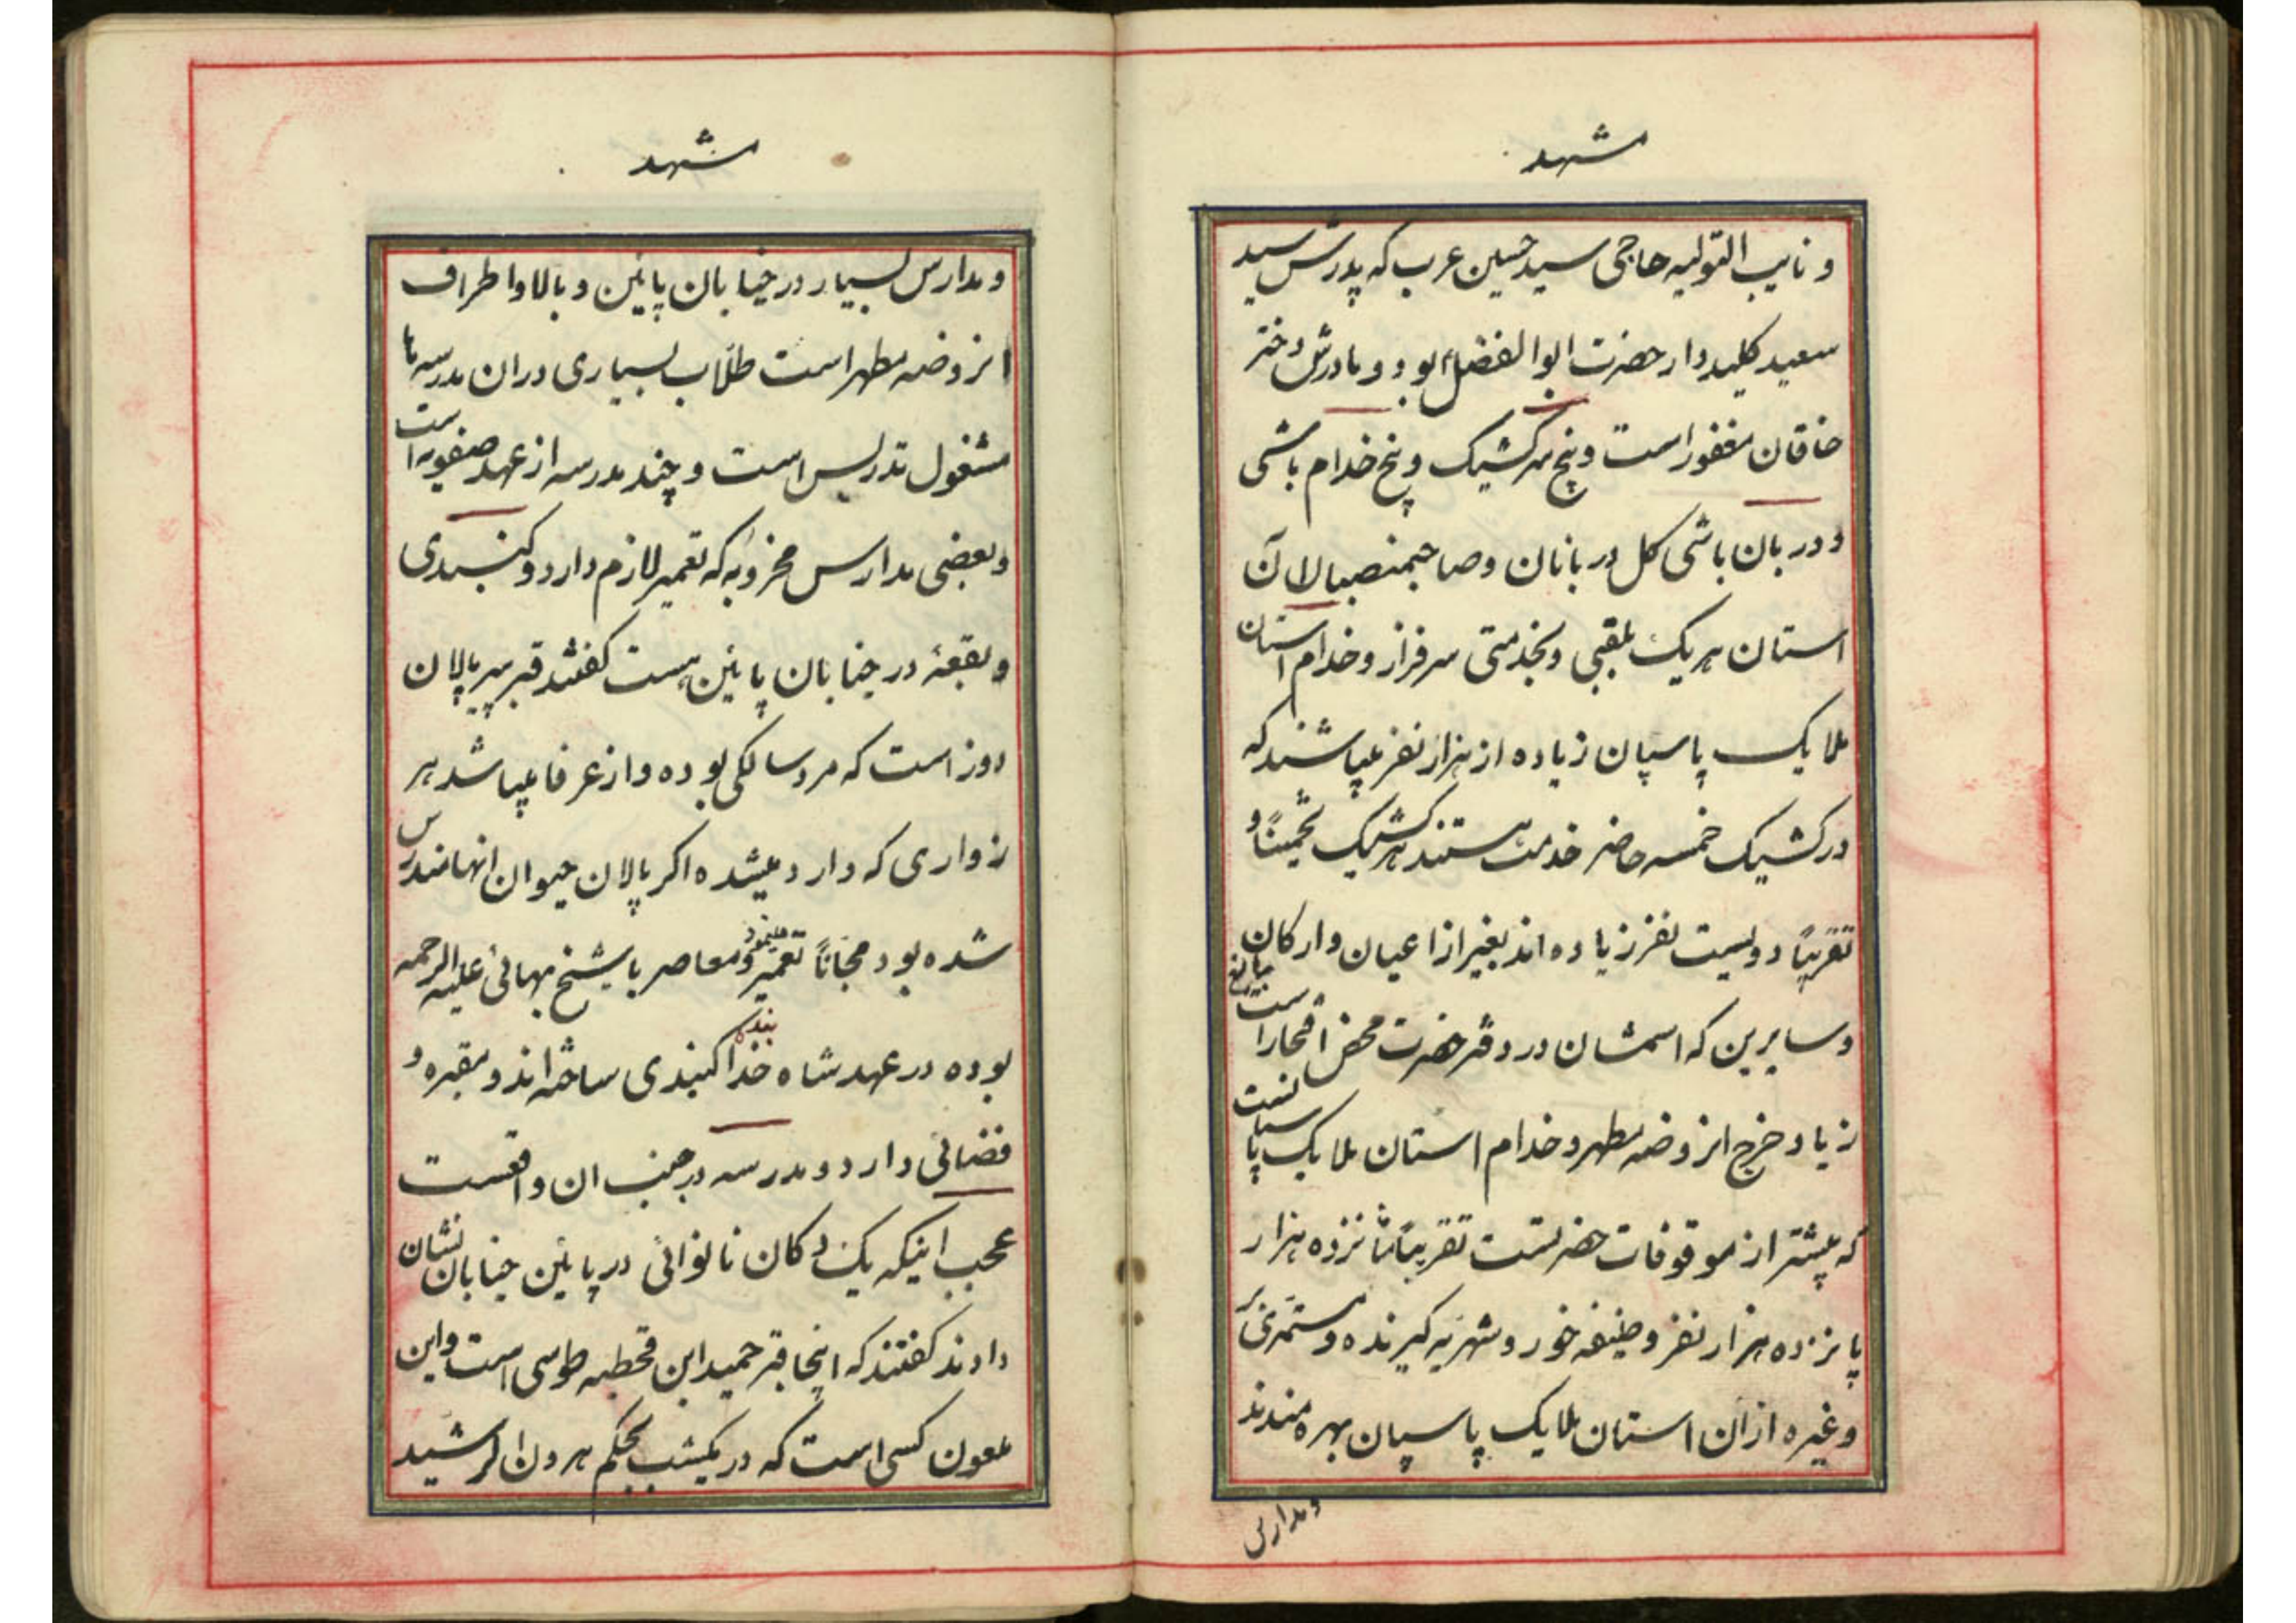 مشهد
و نایب التولیه حاجی سید حسین عرب که پدرش سید
سعید کلیددار حضرت ابوالفضل بود و مادرش دختر
خاقان مغفور است و پنج سرکشیک و پنج خدام باشی
و دربان باشی کل دربانان و صاحبمنصبان آن
استان هریک بلقبی و بخدمتی سرفراز و خدام استان
ملایک پاسپان زیاده از هزار نفر میباشند که
در کشیک خمسه حاضر خدمت هستند هر کشیک تخمیناً و
تقریباً دویست نفر زیاده اند بغیر از اعیان و ارکان
و سایرین که اسمشان در دفتر حضرت محض افتخار است
زیاد خرج این روضه مطهر و خدام استان ملایک پاسبانست
که بیشتر از موقوفات حضرتست تقریباً شانزده هزار
پانزده هزار نفر وظیفه خور و شهریه گیرنده و مستمری بر
و غیره از ان استان ملایک پاسپان بهره مندند
و مدارس
مشهد
و مدارس بسیار در خیابان پائین و بالا و اطراف
این روضه مطهر است طلاب بسیاری در ان مدرسه ها
مشغول تدریس است و چند مدرسه از عهد صفویه است
و بعضی مدارس مخروبه که تعمیر لازم دارد و گنبدی
و بقعۀ در خیابان پائین هست گفتند قبر پیر پالان
دوز است که مرد سالکی بوده و از عرفا میباشد هر
زواری که وارد میشده اگر پالان حیوان انها مندرس
شده بود مجاناً تعمیر مینمود و معاصر با شیخ بهائی علیه الرحمه
بوده در عهد شاه خدا بنده گنبدی ساخته اند و مقبره و
فضائی دارد و مدرسه در جنب ان واقعست
عجب اینکه یک دکان نانوائی در پائین خیابان نشان
دادند گفتند که اینجا قبر حمید ابن قحطبه طوسی است و این
ملعون کسی است که در یکشب بحکم هرون الرشید